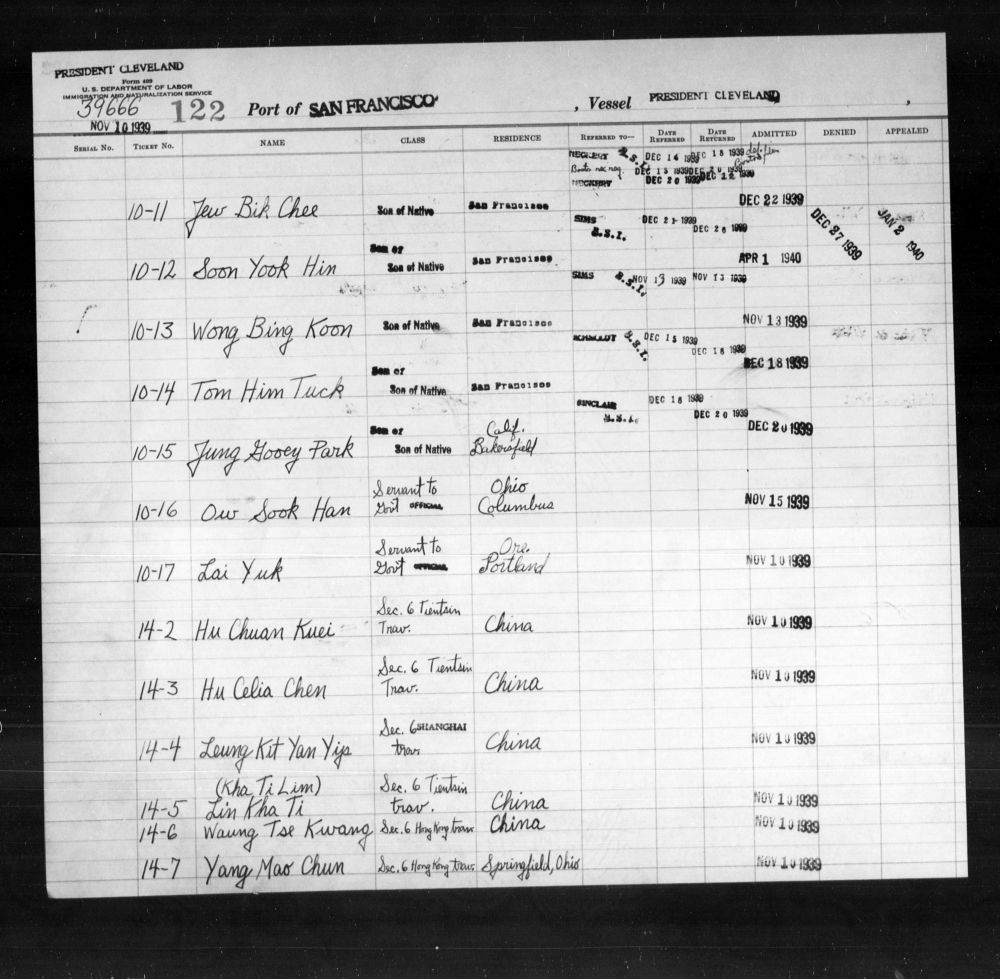 PRESIDENT CLEVELAND
Form 489
U. S. DEPARTMENT OF LABOR
IMMIGRATION AND NATURALIZATION SERVICE
39666 122 Port of SAN FRANCISCO , Vessel PRESIDENT CLEVELAND ,
NOV 10 1939
SERIAL NO. TICKET NO. NAME CLASS RESIDENCE REFERRED TO— DATE REFERRED DATE RETURNED ADMITTED DENIED APPEALED
B.S.I. DEC 14 1939 DEC 18 1939
DEC 15 1939 DEC 20 1939
DEC 20 1939 DEC 22 1939
10-11 Jew Bik Chee Son of Native San Francisco DEC 22 1939
SIMS B.S.I. DEC 21 1939 DEC 26 1939 DEC 27 1939 JAN 2 1940
10-12 Soon Yook Hin Son of Son of Native San Francisco APR 1 1940
SIMS B.S.I. NOV 13 1939 NOV 13 1939
10-13 Wong Bing Koon Son of Native San Francisco NOV 13 1939
SCHMOLDT B.S.I. DEC 15 1939 DEC 18 1939
10-14 Tom Him Tuck Son of Son of Native San Francisco DEC 18 1939
SINCLAIR B.S.I. DEC 18 1939 DEC 20 1939
10-15 Jung Gooey Park Son of Son of Native Calif. Bakersfield DEC 20 1939
10-16 Ow Sook Han Servant to Govt OFFICIAL Ohio Columbus NOV 15 1939
10-17 Lai Yuk Servant to Govt OFFICIAL Ore. Portland NOV 10 1939
14-2 Hu Chuan Kuei Sec. 6 Tientsin Trav. China NOV 10 1939
14-3 Hu Celia Chen Sec. 6 Tientsin Trav. China NOV 10 1939
14-4 Leung Kit Yan Yip Sec. 6 SHANGHAI trav. China NOV 10 1939
(Kha Ti Lim) Sec. 6 Tientsin
14-5 Lin Kha Ti trav. China NOV 10 1939
14-6 Waung Tse Kwang Sec. 6 Hong Kong trav. China NOV 10 1939
14-7 Yang Mao Chun Sec. 6 Hong Kong trav. Springfield, Ohio NOV 10 1939